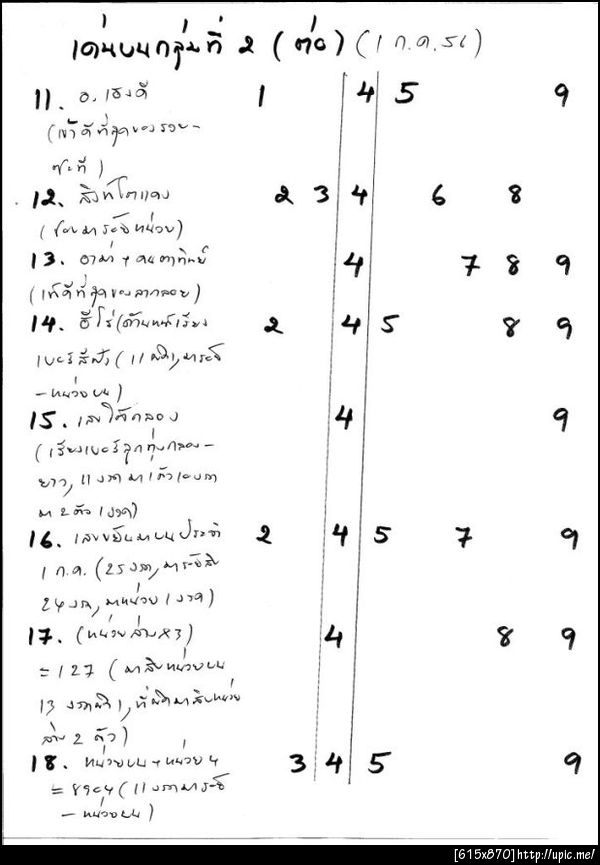 เด่นบนกลุ่มที่ 2 (ต่อ) (1 ก.ค. 56)
11. อ. เฮงดี 1 4 5 9
(เข้าดีที่สุดของรวย-
ซะที)
12. สิงห์โตแดง 2 3 4 6 8
(ชอบมาระวังหน่วย)
13. อาม่า + คนตาทิพย์ 4 7 8 9
(เข้าดีที่สุดของลากลอย)
14. ฮีโร่ (ด้านหน้าเรียง 2 4 5 8 9
เบอร์สีฟ้า (11
-หน่วยบน)
15. เลขใต้กลอง 4 9
(เรียงเบอร์ลูกทุ่งกลอง-
ยาว, 11 งวด มา 1 ตัว
มา 2 ตัว 1 งวด)
16. เลขขยันมาบนประจำ 2 4 5 7 9
1 ก.ค. (25 งวด,
24 งวด, มาหน่วย 1 งวด)
17. (หน่วยล่าง x3) 4 8 9
= 127 (มาสิบหน่วยบน
13 งวดผิด 1, ที่ผิดมาสิบหน่วย
ล่าง 2 ตัว)
18. หน่วยบน + หน่วย 3 4 5 9
= 8904 (11 งวด
-หน่วยบน)
[615x870]http://upic.me/